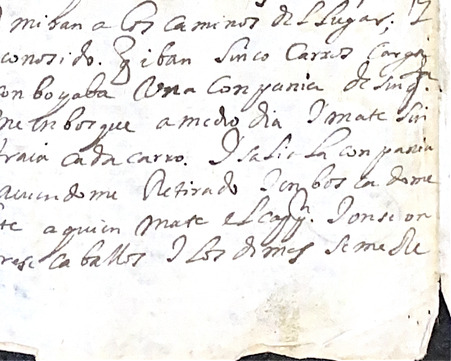 miban a los caminos del lugar. I
conosido. Iiban sinco carros carga
onboyaba Una Conpania de sinq.ta
me enbosque a medio dia I mate sin
traia cada carro. I salio la conpania
auiendome Retirado I enbosca dome
te a quien mate el cappn. I onse on
rese caballos I los demas se me Re